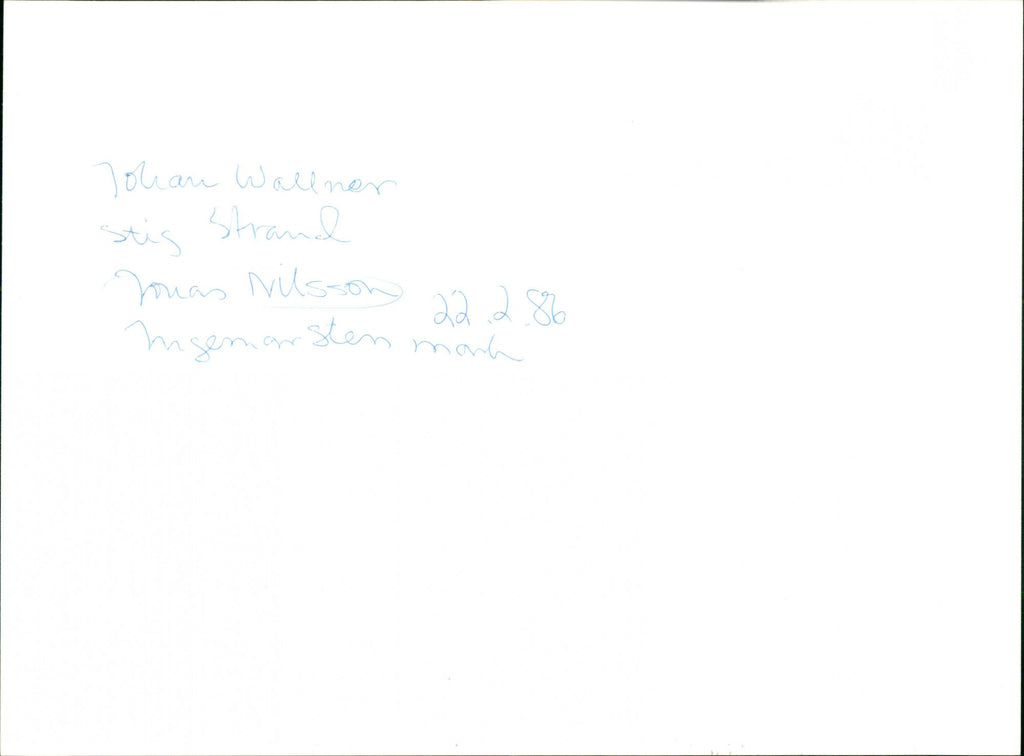 Johan Wallner
Stig Strand
Jonas Nilsson 22.2.86
Ingemar Stenmark